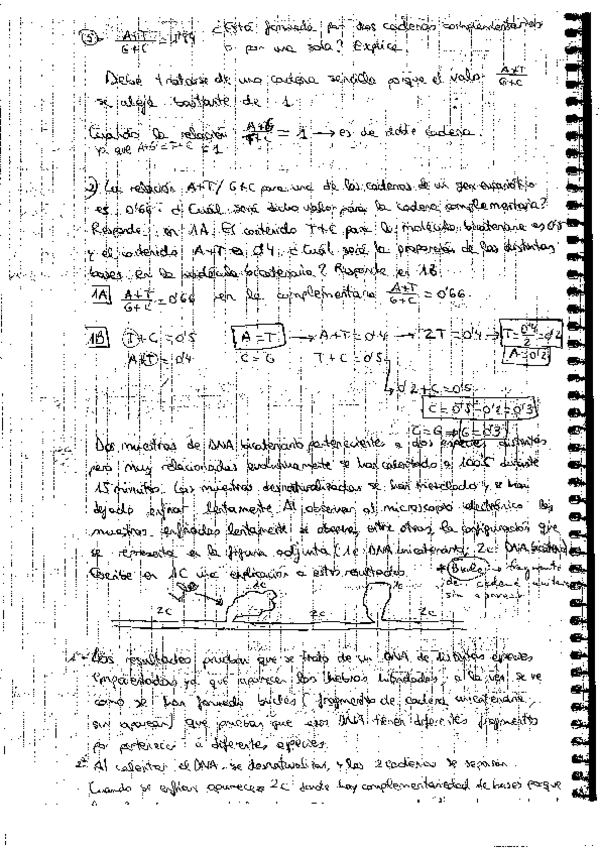 ⑤ (A+T)/(G+C) = ¿Está formada por dos cadenas complementarias
o por una sola? Explica
Debe tratarse de una cadena sencilla porque el valor (A+T)/(G+C)
se aleja bastante de 1.
Cuando la relación = 1 → es de doble cadena.
ya que = 1
2) La relación A+T/G+C para una de las cadenas de un gen eucariótico
es 0'66. ¿Cuál será dicho valor para la cadena complementaria?
Responde en 1A. El contenido T+C para la molécula bicatenaria es 0'5
y el contenido A+T es 0'4. ¿Cuál será la proporción de las distintas
bases en la molécula bicatenaria? Responde en 1B.
1A (A+T)/(G+C) = 0'66 en la complementaria (A+T)/(G+C) = 0'66.
1B T+C = 0'5 A = T → A+T = 0'4 → 2T = 0'4 → T = 0'4/2 = 0'2
A+T = 0'4 C = G T+C = 0'5 A = 0'2
0'2+C = 0'5
C = 0'5-0'2 = 0'3
C = G → G = 0'3
Dos muestras de DNA bicatenario pertenecientes a dos especies distintas
pero muy relacionadas evolutivamente se han calentado a 100°C durante
15 minutos. Las muestras desnaturalizadas se han mezclado y se han
dejado enfriar lentamente. Al observar al microscopio electrónico las
muestras enfriadas lentamente se observa, entre otras, la configuración que
se representa en la figura adjunta (1c DNA unicatenario, 2c DNA
Escribe en 1C una explicación a estos resultados. * Bucle → fragmento
de cadena
sin aparear
2c 2c 2c
1º- Los resultados prueban que se trata de un DNA de distintas especies
emparentadas ya que aparecen las hebras hibridadas, a la vez se ve
como se han formado bucles (fragmentos de cadena unicatenaria,
sin aparear) que prueban que esos DNA tienen diferentes fragmentos
por pertenecer a diferentes especies.
2º Al calentar el DNA se desnaturaliza, y las 2 cadenas se separan.
Cuando se enfrían aparece 2c donde hay complementariedad de bases porque